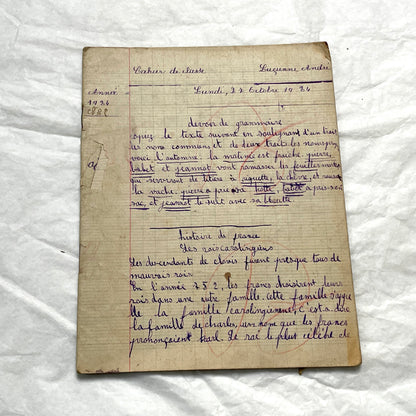 Cahier de classe Lucienne André
Année
1926
Lundi, 22 Octobre 1926
devoir de grammaire
copiez le texte suivant en soulignant d'un trait
les noms communs et de deux traits les noms propres
voici l'automne. la matinée est fraîche. pierre,
babet et jeannot vont ramasser les feuilles mortes
qui serviront de litière à la chèvre, et
la vache. pierre a pris sa hotte. babet a pris son
sac, et jeannot le suit avec sa
histoire de france
Les rois carolingiens
Les descendants de clovis furent presque tous de
mauvais rois
En l'année 752, les francs choisirent leurs
rois dans une autre famille. cette famille s'appe
lle la famille carolingienne, c'est à dire
la famille de charles, un nom que les francs
prononçaient karl. le roi le plus célèbre de